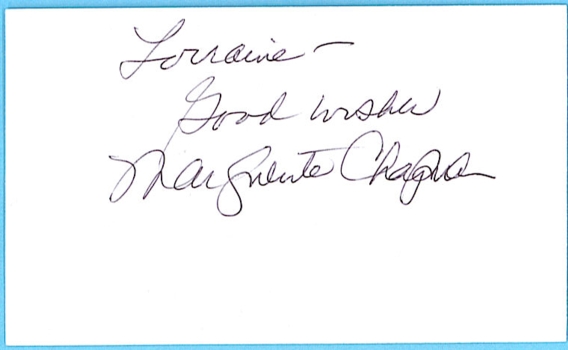 Lorraine –
Good wishes
Marguerite Chapman